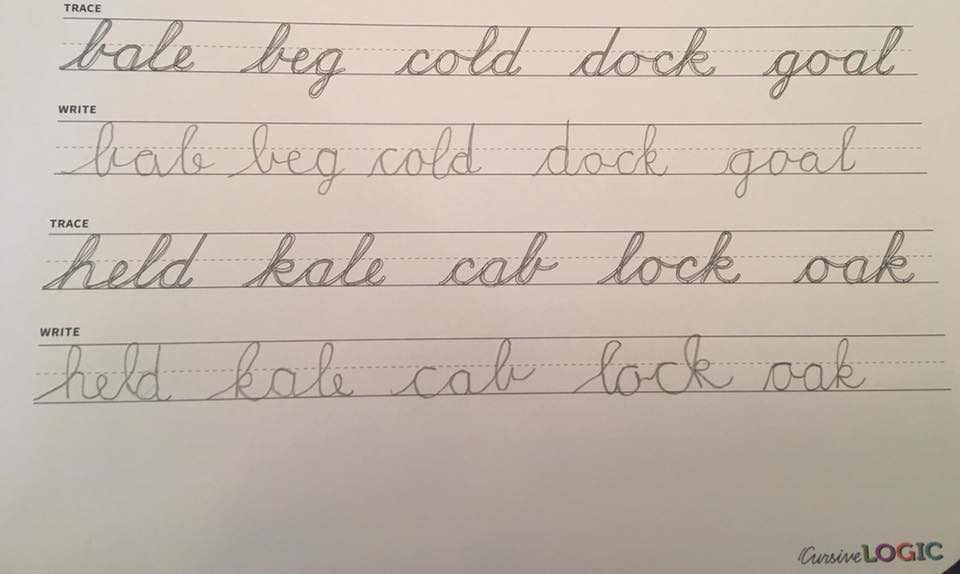 TRACE
bale beg cold dock goal
WRITE
bale beg cold dock goal
TRACE
held kale cab lock oak
WRITE
held kale cab lock oak
CursiveLOGIC